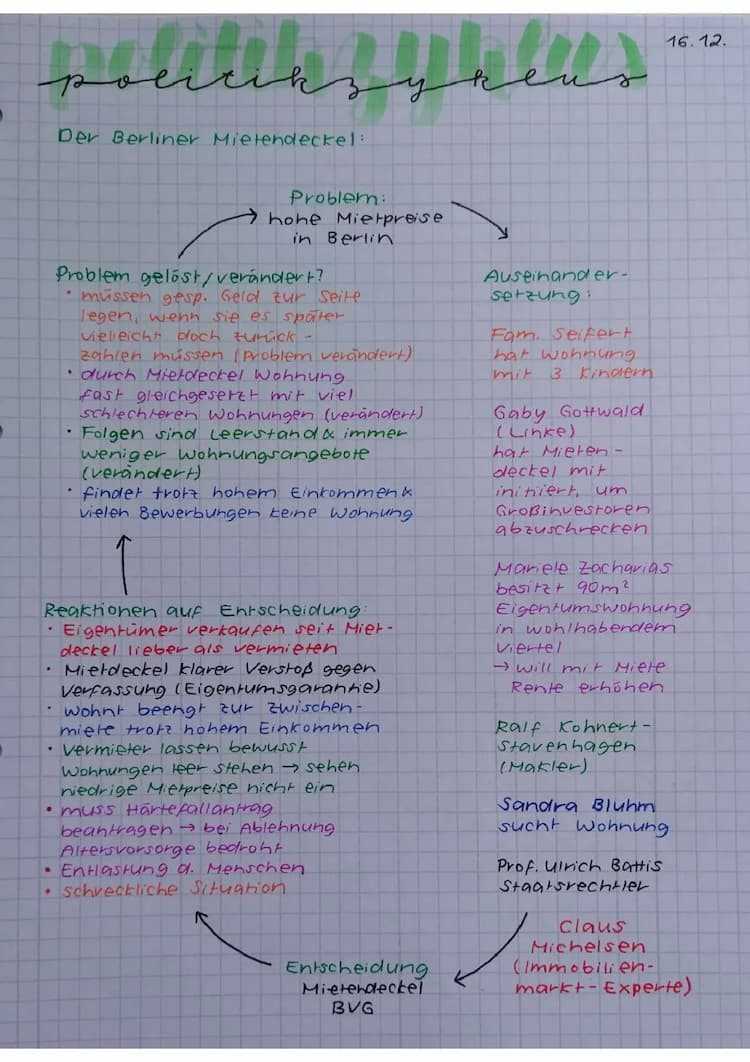 politikzyklus
16.12.
politikzyklus
Der Berliner Mietendeckel:
Problem:
hohe Mietpreise
in Berlin
Auseinander-
setzung:
Fam. Seifert
hat Wohnung
mit 3 Kindern
Gaby Gottwald
(Linke)
hat Mieten-
deckel mit
initiiert, um
Großinvestoren
abzuschrecken
Mariele Zacharias
besitzt 90m²
Eigentumswohnung
in wohlhabendem
Viertel
→ will mit Miete
Rente erhöhen
Ralf Kohnert-
Stavenhagen
(Makler)
Sandra Bluhm
sucht Wohnung
Prof. Ulrich Battis
Staatsrechtler
Claus
Michelsen
(Immobilien-
markt-Experte)
Entscheidung
Mietendeckel
BVG
Reaktionen auf Entscheidung:
• Eigentümer verkaufen seit Miet-
deckel lieber als vermieten
• Mietdeckel klarer Verstoß gegen
Verfassung (Eigentumsgarantie)
• wohnt beengt zur Zwischen-
miete trotz hohem Einkommen
• Vermieter lassen bewusst
Wohnungen leer stehen → sehen
niedrige Mietpreise nicht ein
• muss Härtefallantrag
beantragen → bei Ablehnung
Altersvorsorge bedroht
• Entlastung d. Menschen
• schreckliche Situation
Problem gelöst/verändert?
• müssen gesp. Geld zur Seite
legen, wenn sie es später
vielleicht doch zurück-
zahlen müssen (Problem verändert)
• durch Mietdeckel Wohnung
fast gleichgesetzt mit viel
schlechteren Wohnungen (verändert)
• Folgen sind Leerstand & immer
weniger Wohnungsangebote
(verändert)
• findet trotz hohem Einkommen &
vielen Bewerbungen keine Wohnung